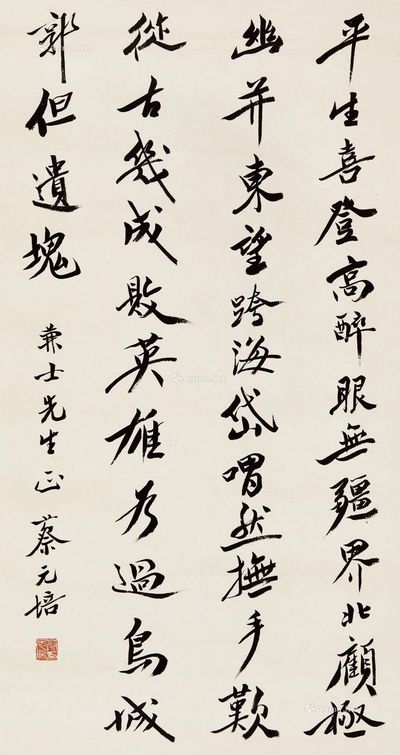 平生喜登高醉眼無疆界北顧極
幽并東望跨海岱喟然撫手歎
從古幾成敗英雄為過鳥城
郭但遺塊
兼士先生正 蔡元培